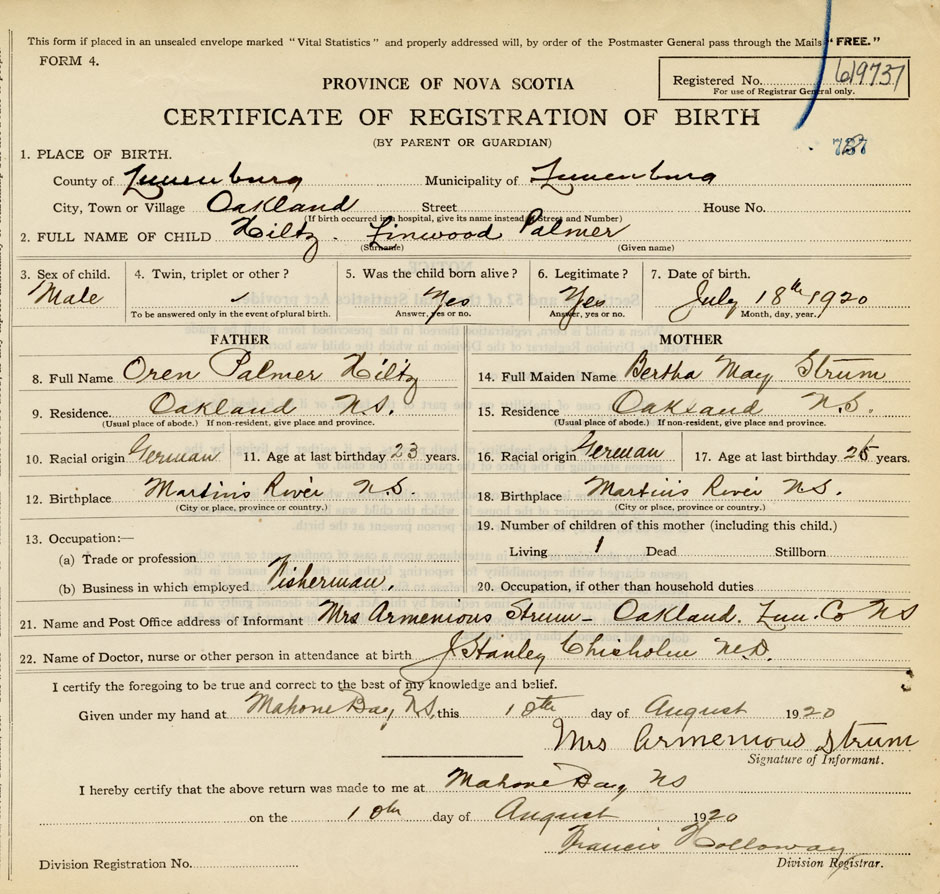 This form if placed in an unsealed envelope marked "Vital Statistics" and properly addressed will, by order of the Postmaster General pass through the Mails "FREE."
FORM 4.
Registered No. 619737
For use of Registrar General only.
PROVINCE OF NOVA SCOTIA
CERTIFICATE OF REGISTRATION OF BIRTH
(BY PARENT OR GUARDIAN)
1. PLACE OF BIRTH.
County of Lunenburg Municipality of Lunenburg
City, Town or Village Oakland Street House No.
(If birth occurred in a hospital, give its name instead of Street and Number)
2. FULL NAME OF CHILD Hiltz. Linwood Palmer
(Surname) (Given name)
3. Sex of child. 4. Twin, triplet or other? 5. Was the child born alive? 6. Legitimate? 7. Date of birth.
Male Yes Yes July 18th 1920
To be answered only in the event of plural birth. Answer, yes or no. Answer, yes or no. Month, day, year.
FATHER MOTHER
8. Full Name Oren Palmer Hiltz 14. Full Maiden Name Bertha May Strum
9. Residence. Oakland N.S. 15. Residence Oakland N.S.
(Usual place of abode.) If non-resident, give place and province. (Usual place of abode.) If non-resident, give place and province.
10. Racial origin German 11. Age at last birthday 23 years. 16. Racial origin German 17. Age at last birthday years.
12. Birthplace Martin's River N.S. 18. Birthplace Martin's River N.S.
(City or place, province or country.) (City or place, province or country.)
13. Occupation:— 19. Number of children of this mother (including this child.)
(a) Trade or profession Living 1 Dead Stillborn
(b) Business in which employed Fisherman. 20. Occupation, if other than household duties
21. Name and Post Office address of Informant Mrs Armenious Strum - Oakland. Lun. Co NS
22. Name of Doctor, nurse or other person in attendance at birth J Stanley Chisholm M.D.
I certify the foregoing to be true and correct to the best of my knowledge and belief.
Given under my hand at Mahone Bay N.S, this 10th day of August 1920
Mrs Armenious Strum
Signature of Informant.
I hereby certify that the above return was made to me at Mahone Bay NS
on the 10th day of August 1920
Francis Holloway
Division Registration No. Division Registrar.